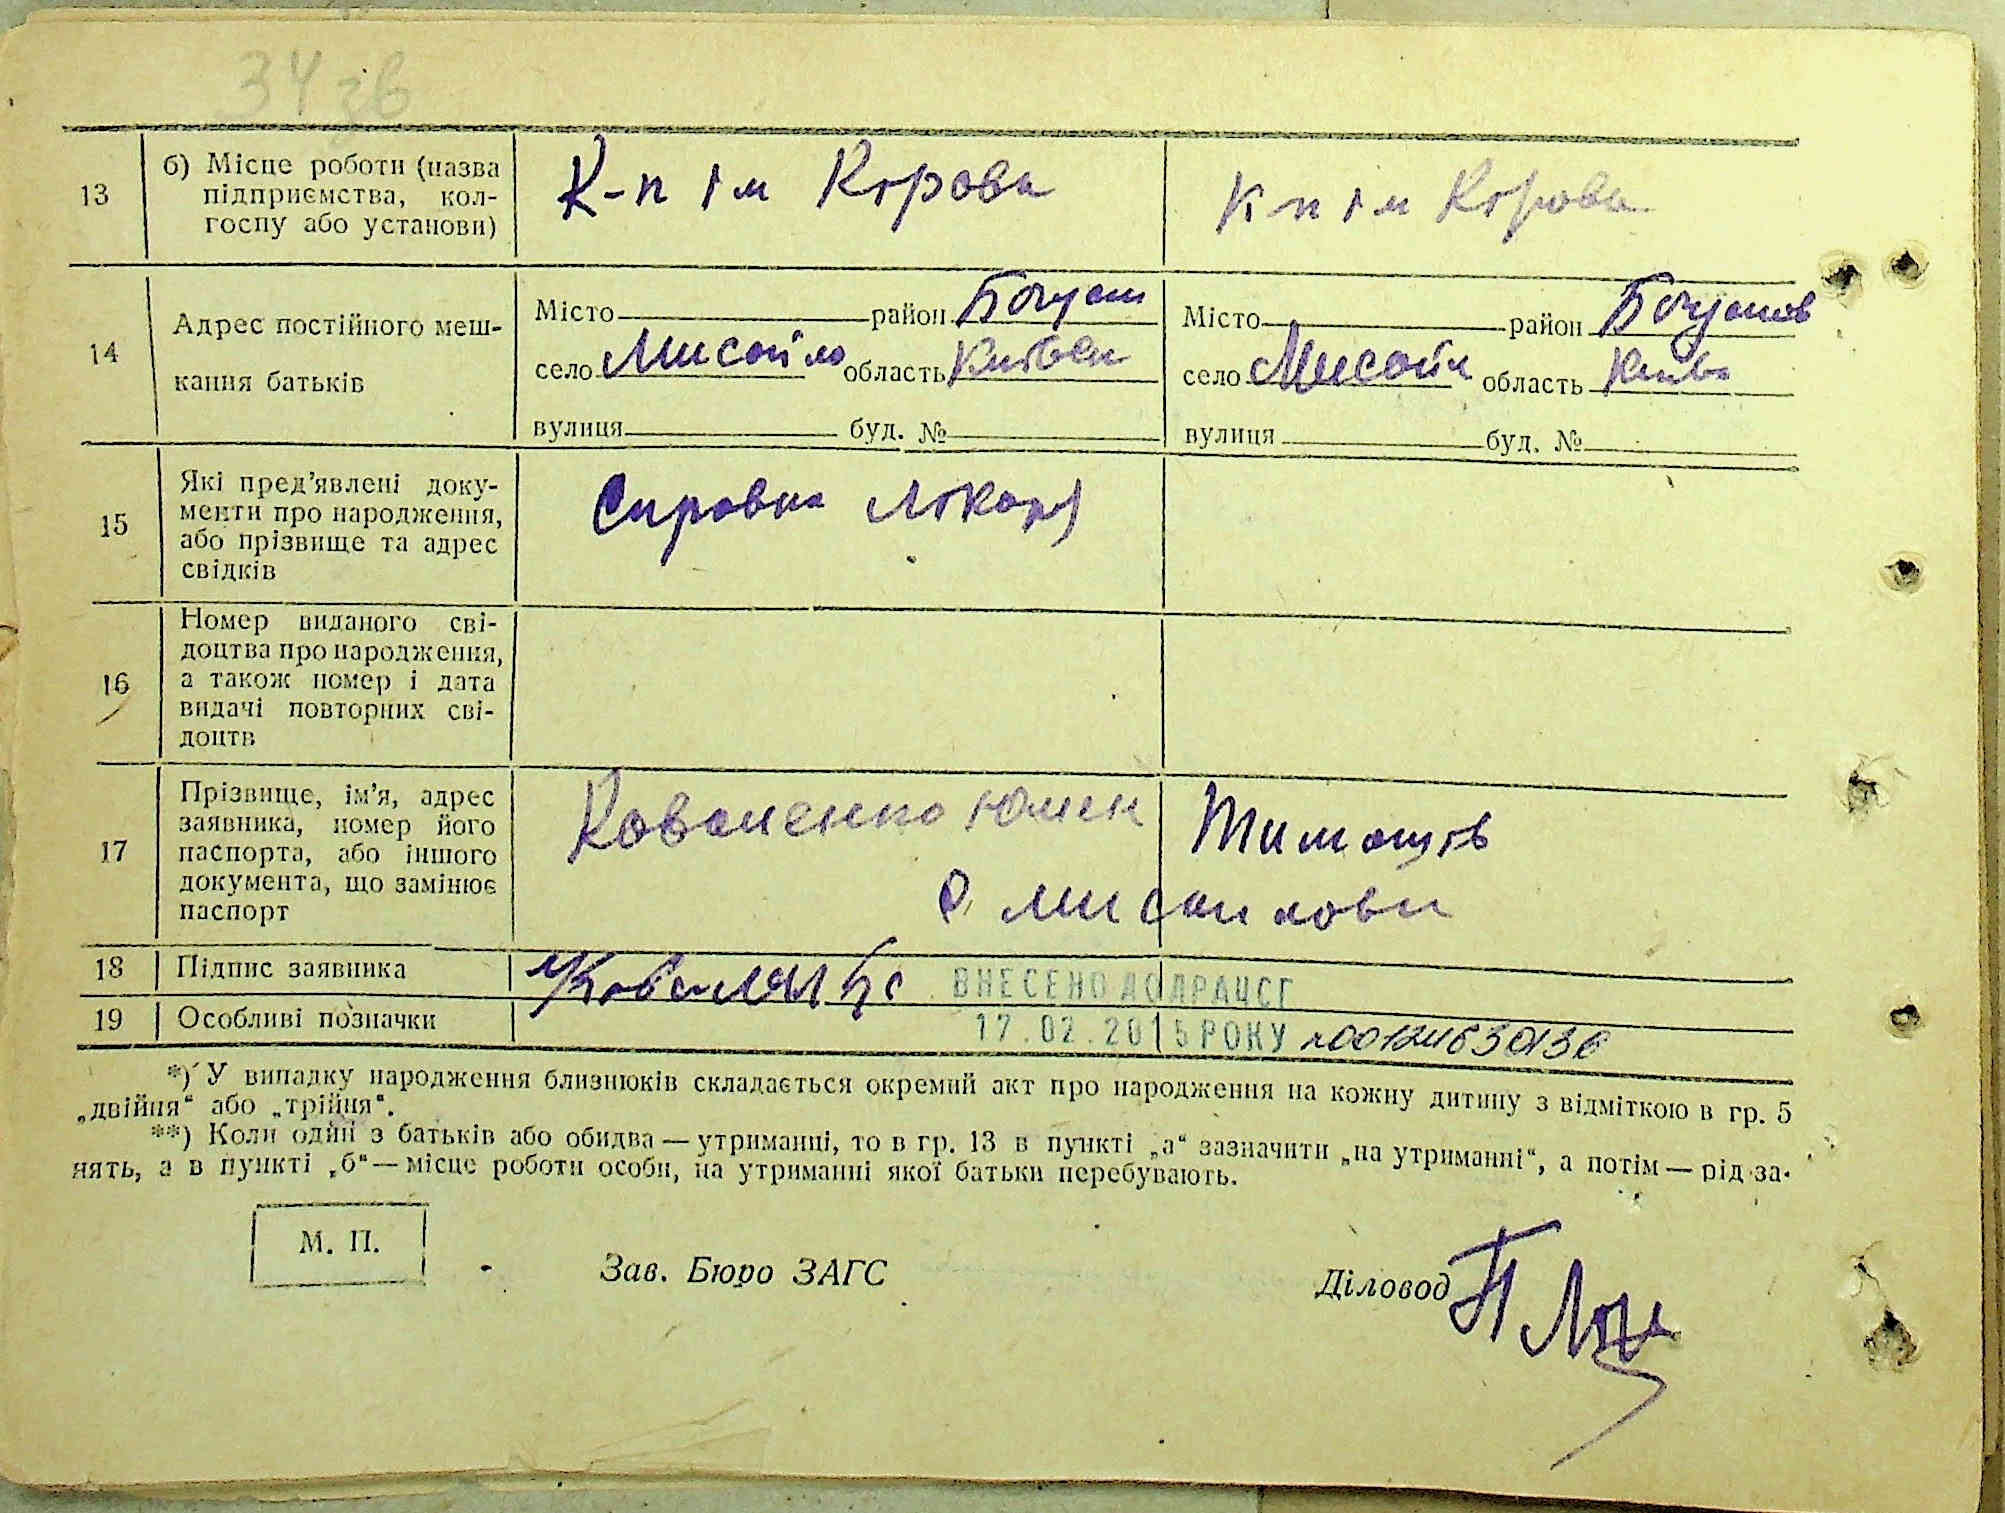 34 зв
13
б) Місце роботи (назва
підприємства, кол-
госпу або установи)
К-п ім Кірова
К п ім Кірова
14
Адрес постійного меш-
кання батьків
Місто район Богуслав
село Мисайло область Київськ
вулиця буд. №
Місто район Богуслав
село Мисайл область Київ
вулиця буд. №
15
Які пред'явлені доку-
менти про народження,
або прізвище та адрес
свідків
Справка лікаря
16
Номер виданого сві-
доцтва про народження,
а також номер і дата
видачі повторних сві-
доцтв
17
Прізвище, ім'я, адрес
заявника, номер його
паспорта, або іншого
документа, що замінює
паспорт
Коваленко Юлен Тимошів
с. Мисайлови
18
Підпис заявника
Коваленко
ВНЕСЕНО ДО ДРАЦСГ
19
Особливі позначки
17.02.2015 РОКУ
*) У випадку народження близнюків складається окремий акт про народження на кожну дитину з відміткою в гр. 5
„двійня“ або „трійня“.
**) Коли один з батьків або обидва — утриманні, то в гр. 13 в пункті „а“ зазначити „на утриманні“, а потім — рід за-
нять, а в пункті „б“ — місце роботи особи, на утриманні якої батьки перебувають.
М. П.
Зав. Бюро ЗАГС
Діловод